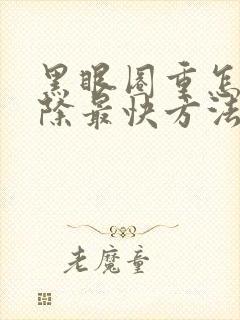 黑眼圈重怎
除最快方法
老魔童